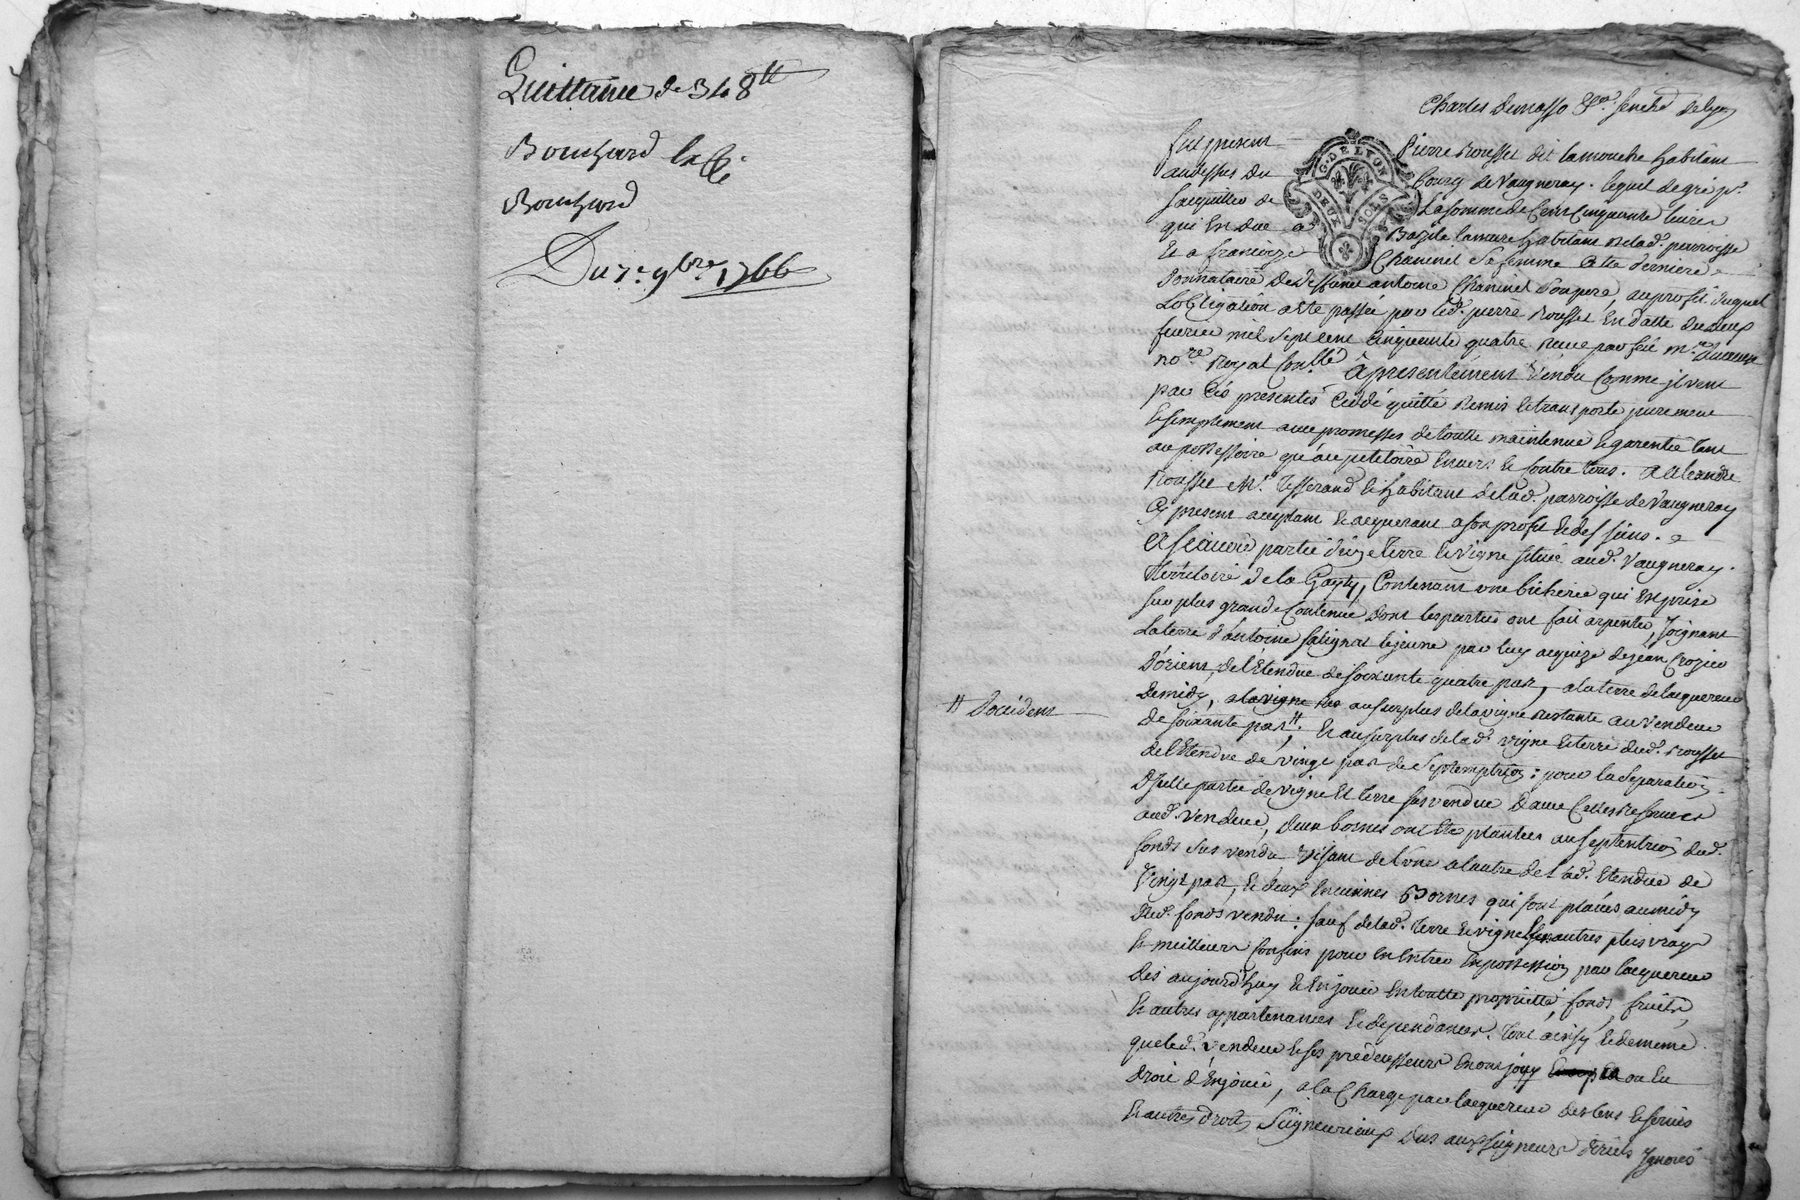 Quittance de 348tt
Bouchard
Bouchard
Du 7e 9bre 1766
Charles Demasso Sénéchal de Lyon
G. DE LYON
DEUX SOLS
fut present Pierre Rousset dit Lamouche habitant
audessus du bourg de Vaugneray. lequel de gré pr.
sacquitter de La somme de Cent Cinquante livres
qui Est due a Bazile Lamure habitant de lad. parroisse
Et a francoize Chaninel sa femme Cette derniere
Donnataire de deffunt antoine Chaninel son pere, au profit duquel
Lobligation a ete passée par led. pierre Rousset En datte du deux
feuvrier mil sept cent Cinquante quatre Recue par feu me.
nore. Royal à presentement Vendu Comme il vent
par Ces presentes Cedde quitte Remis Et transporte purement
Et simplement avec promesses de toutte maintenue Et garentie tant
au possessoire qu'au petitoire Envers Et Contre tous. a alexandre
Rousset Mr. Tisserand Et habitant de lad. parroisse de Vaugneray
Cy present acceptant Et acquerant a son profit Et des siens.
Asscavoir partie d'une terre Et Vigne située aud. Vaugneray.
territoire de la Gayty, Contenant une bicherée qui Est prise
sur plus grande Contenüe dont les parties ont fait arpenter, Joignant
La terre d'antoine le jeune par luy acquize de jean Crozier
D'orient, de l'Etendue de soixante quatre pas, a la terre de lacquereur
de midy, a la vigne au surplus de la vigne Restante au vendeur
# D'occident
de soixante pas #. Et au surplus de lad. vigne Et terre dud. Rousset
de l'Etendue de vingt pas de Septemption: pour la Separation
d'Jcelle partie de vigne Et terre sus vendue D'avec Celles Reservées
aud. vendeur, deux bornes ont Ete plantées au septentrion dud.
fonds sus vendu visant de l'une a l'autre de l'ad. Etendue de
Vingt pas, Et deux anciennes Bornes qui sont placées au midy
dud. fonds vendu: sauf de lad. terre Et vigne autres plus vrays
Et meilleurs Confins pour En Entrer En possession par lacquereur
des aujourd'huy Et En jouir En toutte proprieté, fonds, fruits,
Et autres appartenances Et dependances. tout ainsy Et de meme
que led. vendeur Et ses prédecesseurs En ont jouy ou Eu
droit d'En jouir, a la Charge par lacquereur des Cens Et servis
Et autres droits Seigneuriaux Dus aux seigneurs directs Ignorés